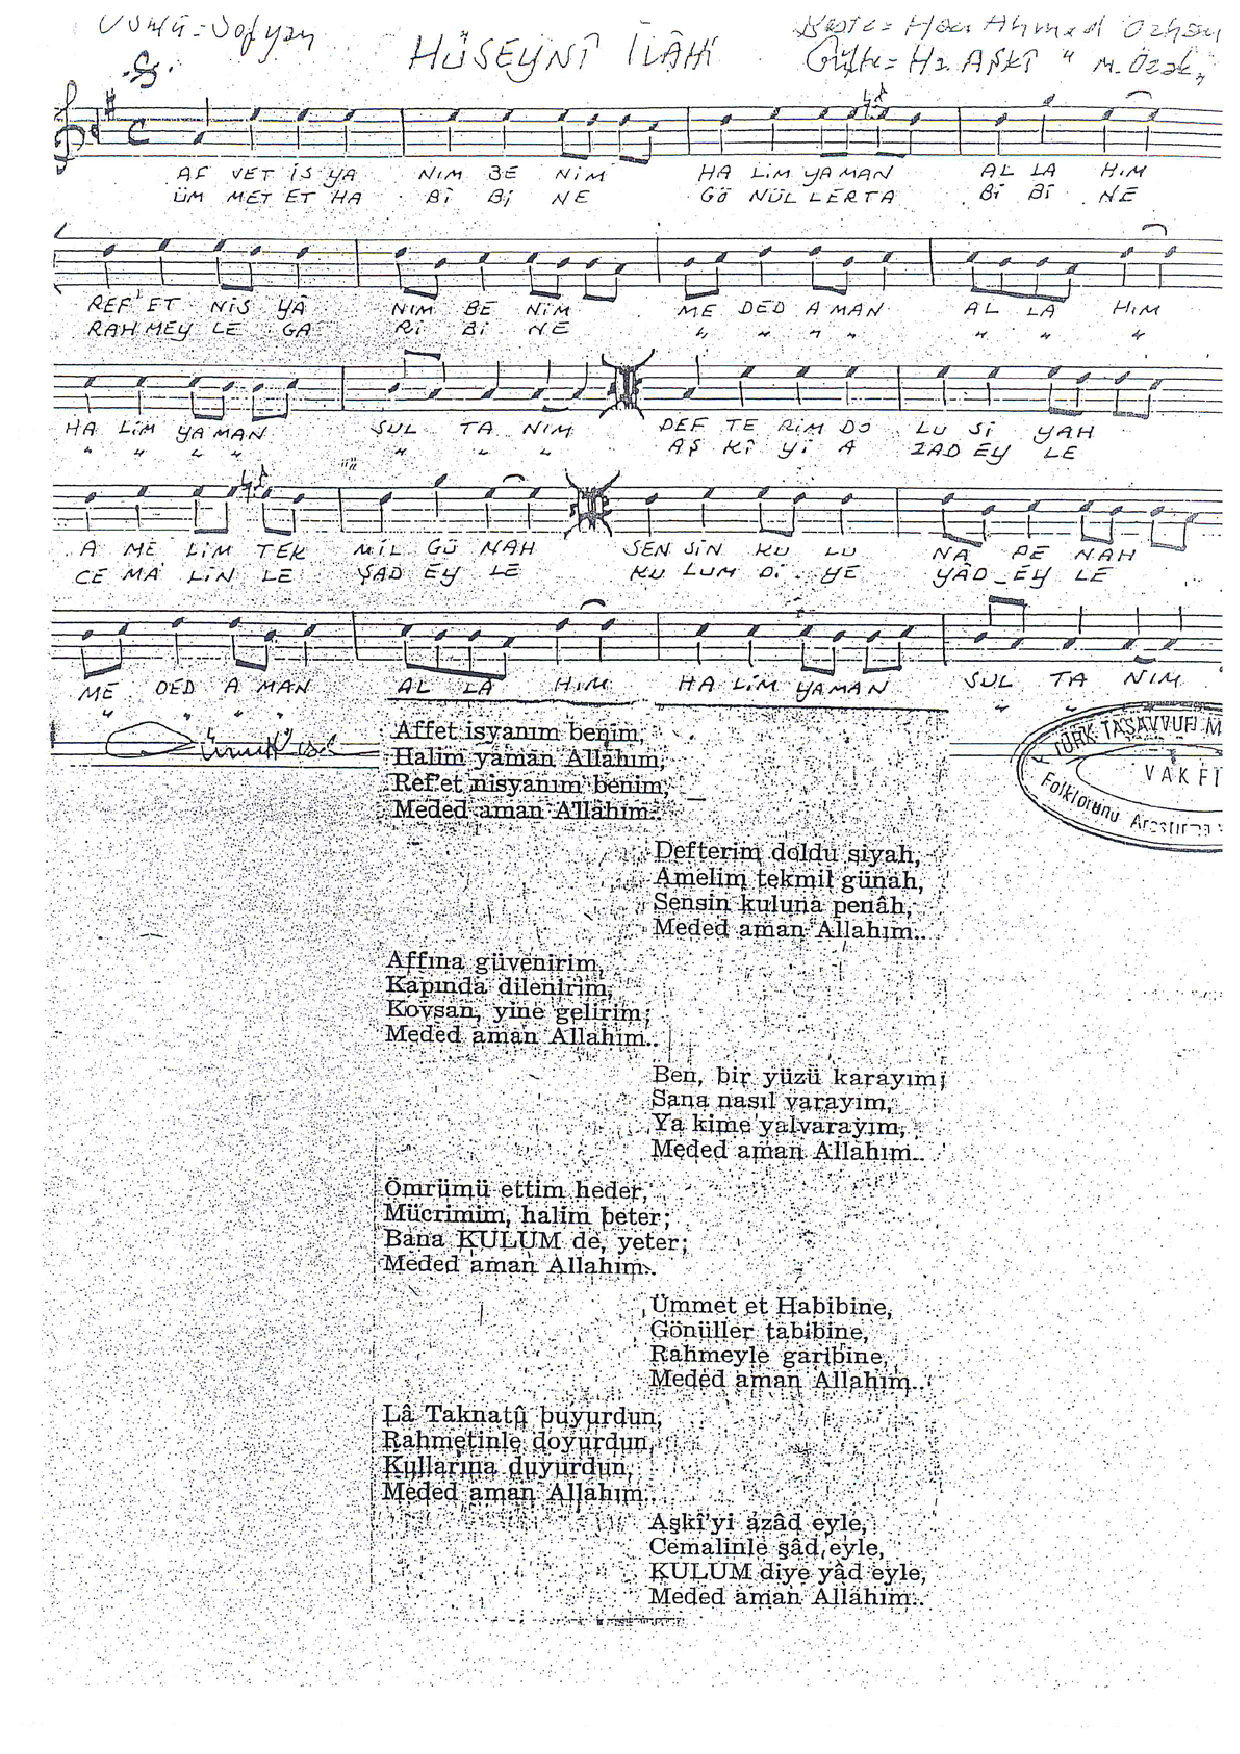 Usulü=Sofyan
HÜSEYNÎ İLÂHİ
Beste= Hacı Ahmed Özhan
Güfte= Hz. AŞKÎ " M. Özak "
AF VET İS YA NIM BE NİM HA LİM YA MAN AL LA HIM
ÜM MET ET HA Bİ Bİ NE GÖ NÜL LER TA Bİ Bİ NE
REF' ET NİS YÂ NIM BE NİM ME DED A MAN AL LA HIM
RAH MEY LE GA Rİ Bİ NE " " " " " " "
HA LİM YA MAN SUL TA NIM DEF TE RİM DO LU Sİ YAH
" " " " " " " AŞ KÎ Yİ A ZAD EY LE
A ME LİM TEK MİL GÜ NAH SEN SİN KU LU NA PE NAH
CE MA LİN LE ŞAD EY LE KU LUM Dİ YE YÂD EY LE
ME DED A MAN AL LA HIM HA LİM YA MAN SUL TA NIM
" " " " " "
TÜRK TASAVVUF M
VAKFI
Folklorunu Araştırma
Affet isyanım benim,
Halim yaman Allahım,
Ref'et nisyanım benim,
Meded aman Allahım.
Defterim doldu siyah,
Amelim tekmil günah,
Sensin kuluna penâh,
Meded aman Allahım..
Affına güvenirim,
Kapında dilenirim,
Kovsan, yine gelirim;
Meded aman Allahım..
Ben, bir yüzü karayım;
Sana nasıl varayım,
Ya kime yalvarayım,
Meded aman Allahım..
Ömrümü ettim heder,
Mücrimim, halim beter;
Bana KULUM de, yeter;
Meded aman Allahım..
Ümmet et Habibine,
Gönüller tabibine,
Rahmeyle garibine,
Meded aman Allahım..
Lâ Taknatû buyurdun,
Rahmetinle doyurdun,
Kullarına duyurdun,
Meded aman Allahım..
Aşkî'yi azâd eyle,
Cemalinle şâd eyle,
KULUM diye yâd eyle,
Meded aman Allahım..